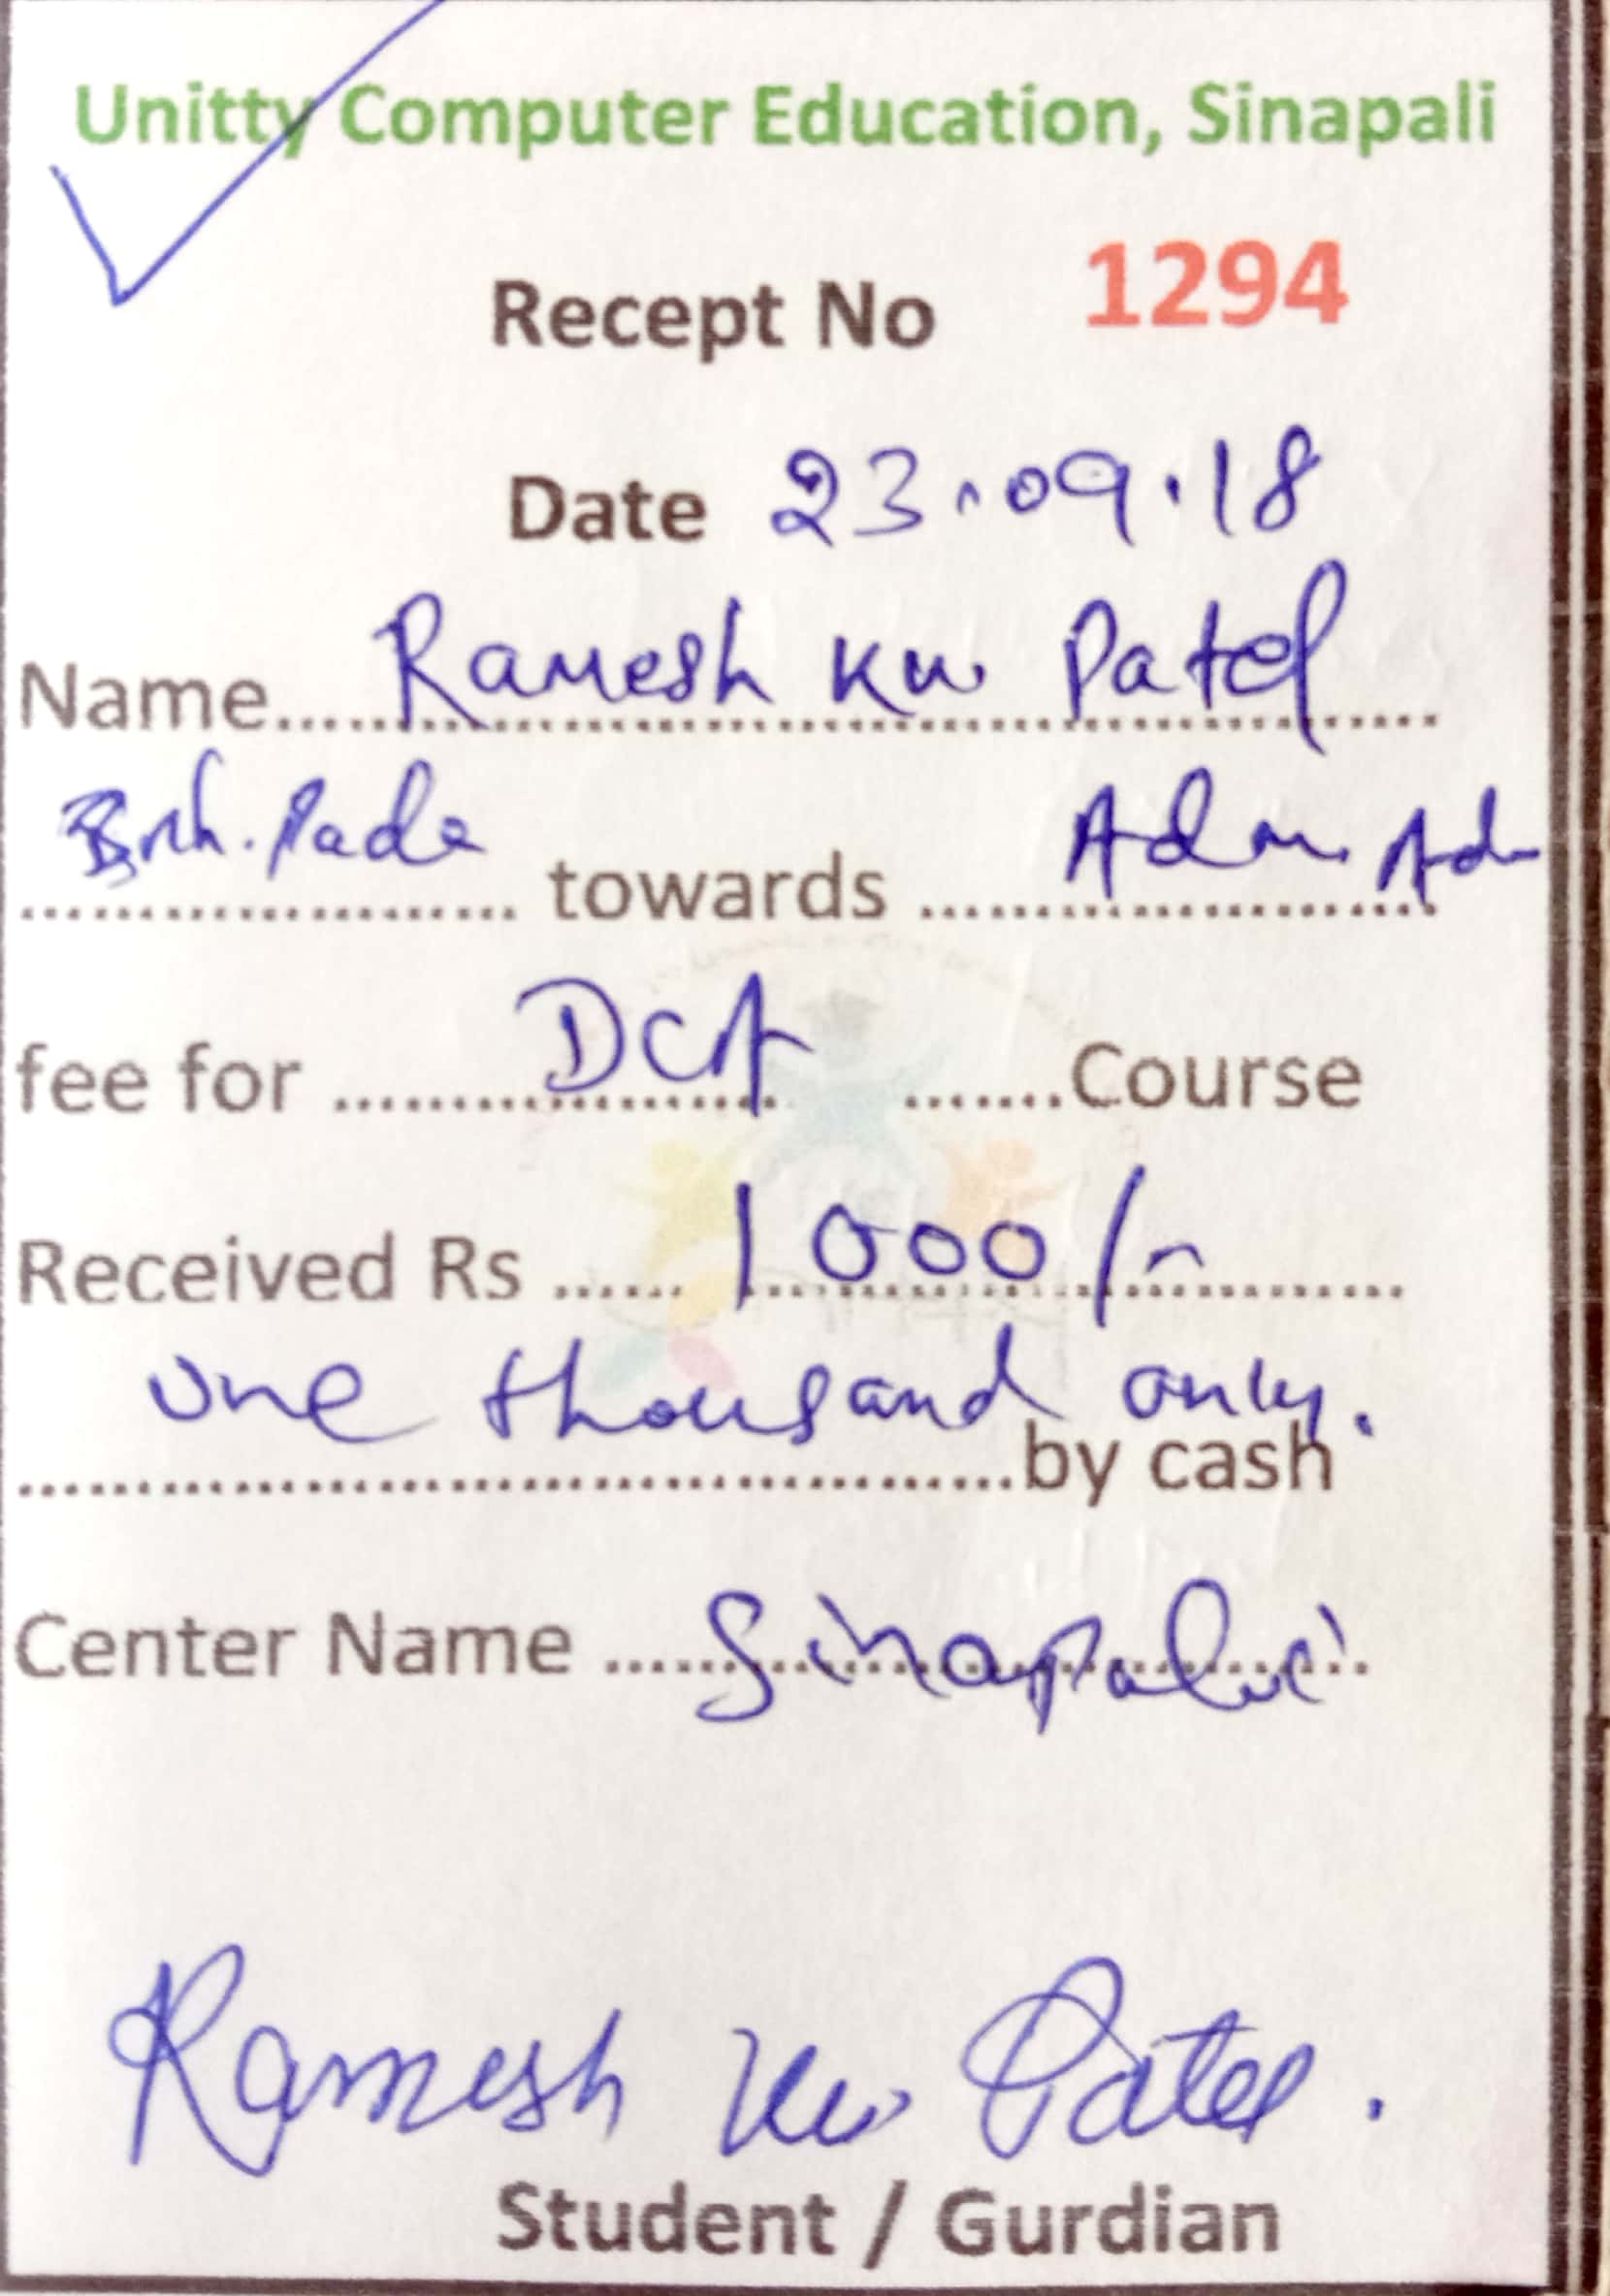 Unitty Computer Education, Sinapali
Recept No 1294
Date 23.09.18
Name Ramesh Ku Patel
Pada towards Adm. Ad
fee for DCA Course
Received Rs 1000/-
one thousand only.
by cash
Center Name Sinapali
Ramesh Ku Patel.
Student / Gurdian